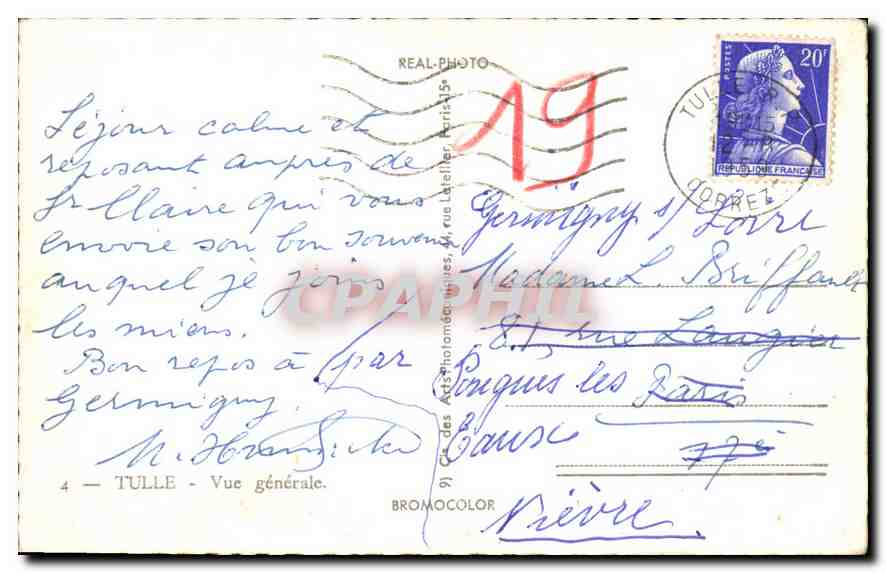 REAL-PHOTO
19
POSTES
20F
REPUBLIQUE FRANÇAISE
TULLE
CORREZE
Séjour calme et
reposant auprès de
Sr Claire qui vous
envoie son bon souvenir
auquel je joins
les miens.
Bon repos à
Germigny.
4 — TULLE - Vue générale.
Cie des Arts Photomécaniques, 44, rue Letellier, Paris-15e
BROMOCOLOR
Germigny s/ Loire
Madame L. Briffault
81, rue Laugier
par Pougues les Paris
Eaux 17è
Nièvre.
CPAPHIL